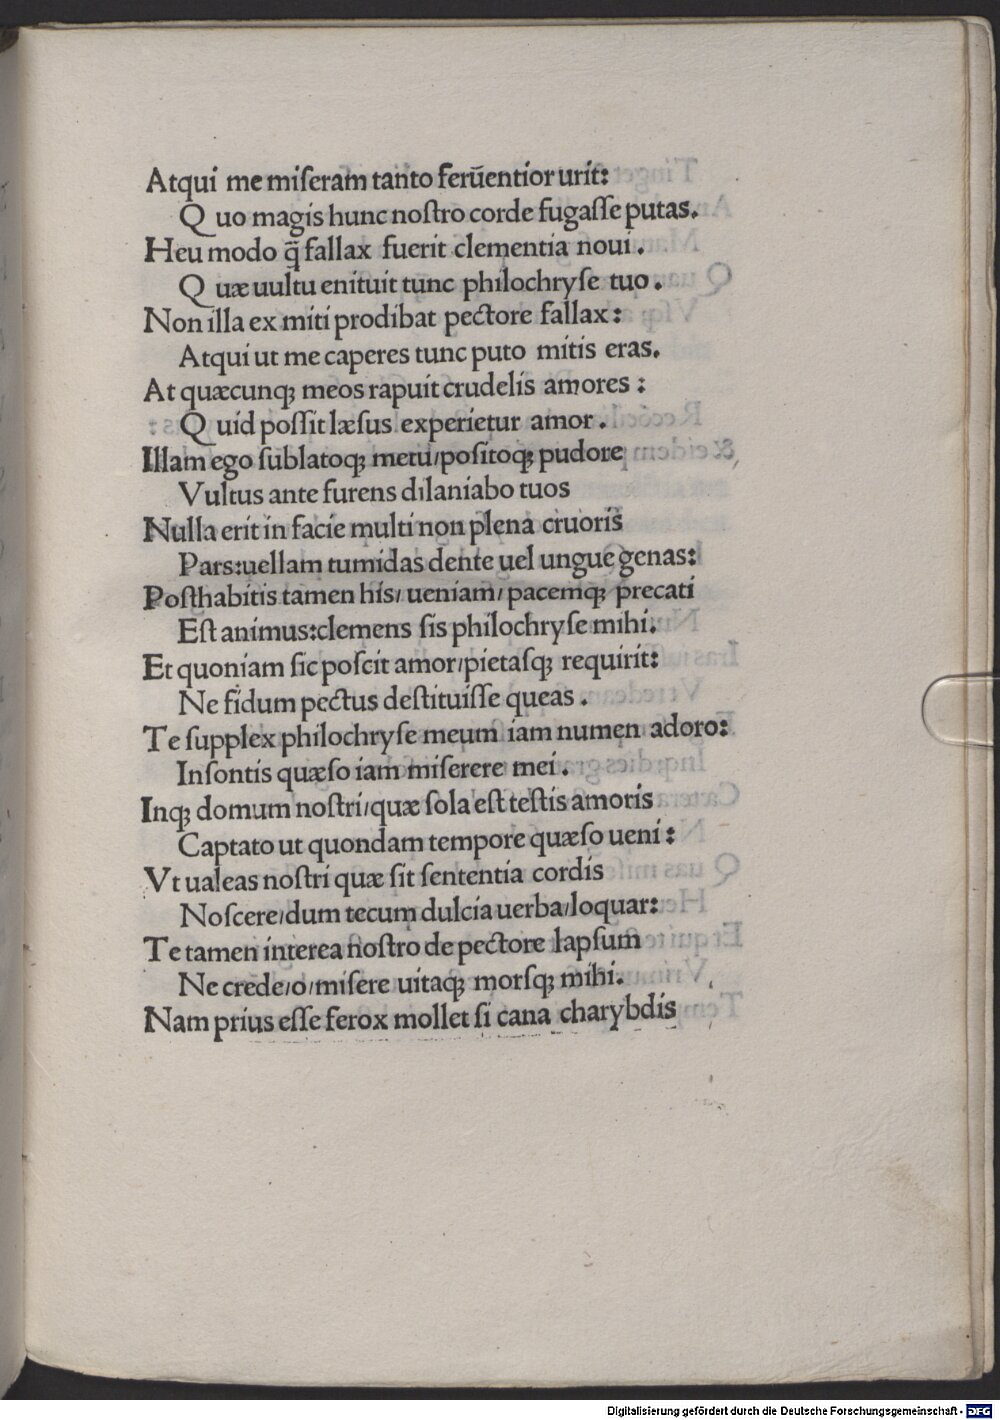 Atqui me miſeram tanto ferūentior urit:
Q uo magis hunc noſtro corde fugaſſe putas.
Heu modo q̄ fallax fuerit clementia noui.
Q uæ uultu enituit tunc philochryſe tuo.
Non illa ex miti prodibat pectore fallax:
Atqui ut me caperes tunc puto mitis eras.
At quæcunqꝫ meos rapuit crudelis amores:
Q uid poſſit læſus experietur amor.
Illam ego ſublatoqꝫ metu/poſitoqꝫ pudore
Vultus ante furens dilaniabo tuos
Nulla erit in facie multi non plena cruoris
Pars:uellam tumidas dente uel ungue genas:
Poſthabitis tamen his/ueniam/pacemqꝫ precati
Eſt animus:clemens ſis philochryſe mihi.
Et quoniam ſic poſcit amor/pietaſqꝫ requirit:
Ne fidum pectus deſtituiſſe queas.
Te ſupplex philochryſe meum iam numen adoro:
Inſontis quæſo iam miſerere mei.
Inqꝫ domum noſtri/quæ ſola eſt teſtis amoris
Captato ut quondam tempore quæſo ueni:
Vt ualeas noſtri quæ ſit ſententia cordis
Noſcere/dum tecum dulcia uerba/loquar:
Te tamen interea noſtro de pectore lapſum
Ne crede/o/miſere uitaqꝫ morſqꝫ mihi.
Nam prius eſſe ferox mollet ſi cana charybdis
Digitalisierung gefördert durch die Deutsche Forschungsgemeinschaft - DFG